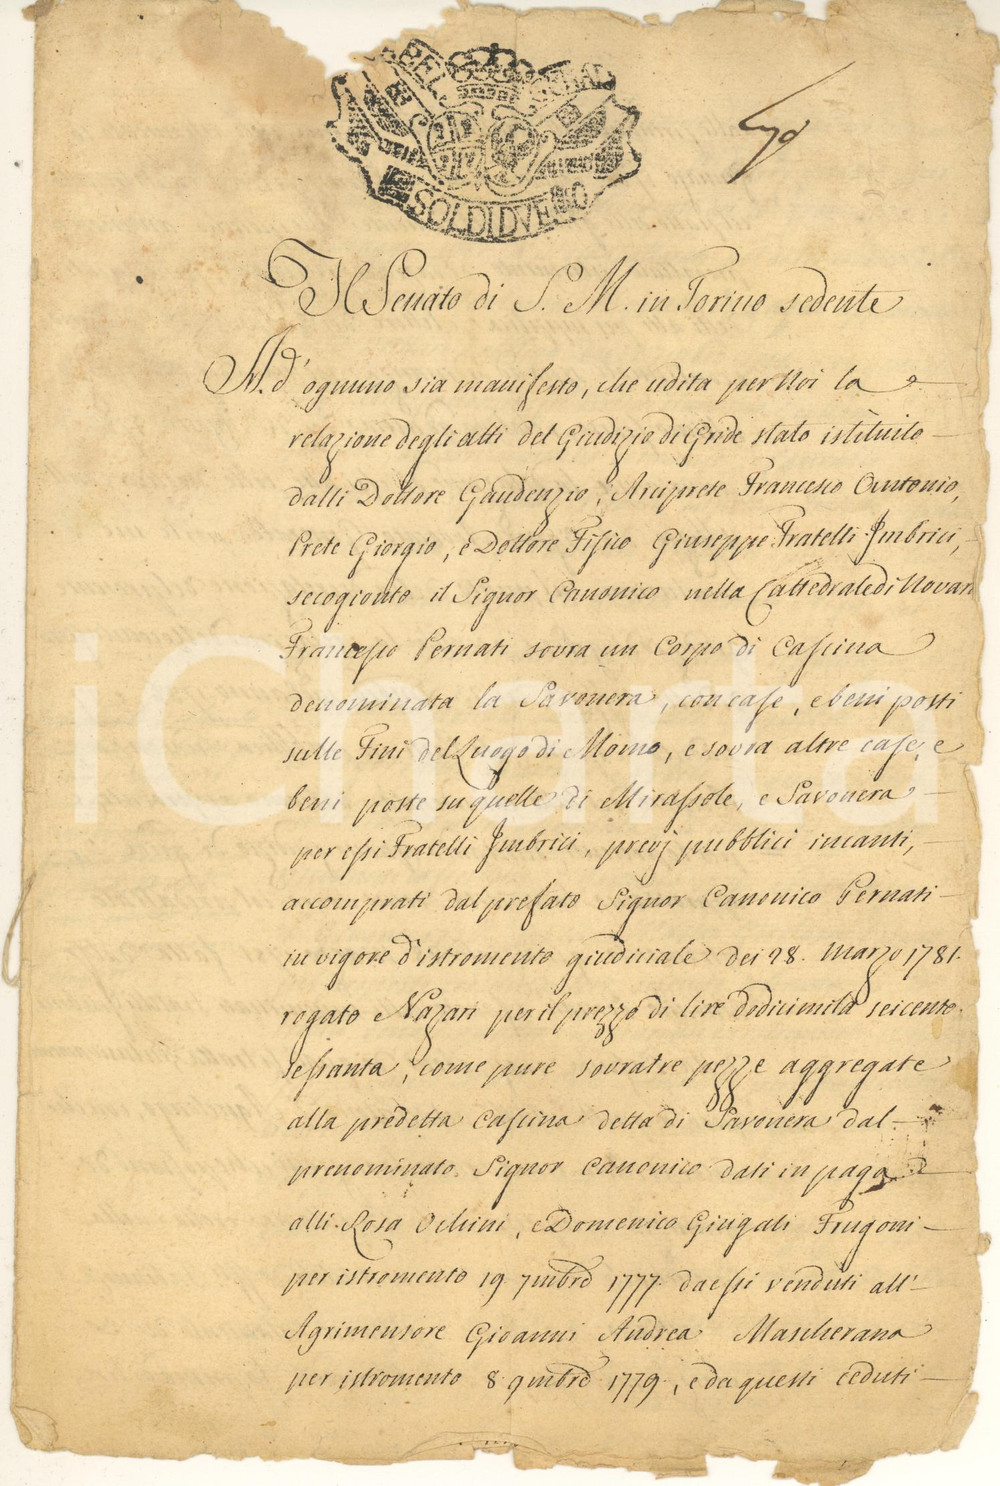 SOLDI DVE
Il Senato di S. M. in Torino sedente
Ad' ognuno sia manifesto, che udita per Noi la
relazione degli atti del Giudizio di Gride stato istituito
dalli Dottore Gaudenzio, Arciprete Francesco Antonio,
Prete Giorgio, e Dottore Fisico Giuseppe Fratelli Imbrici,
secogionto il Signor Canonico nella Cattedrale di Novara
Francesco Pernati sovra un Corpo di Cassina
denominata la Savonera, con case, e beni posti
sulle Fini del Luogo di Momo, e sovra altre case, e
beni poste su quelle di Mirassole, e Savonera
per essi Fratelli Imbrici, previj pubblici incanti,
accomprati dal prefato Signor Canonico Pernati
in vigore d'istromento giudiciale dei 28. Marzo 1781.
rogato Nazari per il prezzo di lire dodicimila seicento
sessanta, come pure sovra tre pezze aggregate
alla predetta Cassina detta di Savonera dal
prenominato Signor Canonico dati in paga
alli Rosa Ochini, e Domenico Giugali Frugoni
per istromento 19 7mbre 1777. da essi venduti all'
Agrimensore Gioanni Andrea Mascherana
per istromento 8. 9mbre 1779., e da questi ceduti
iCharta